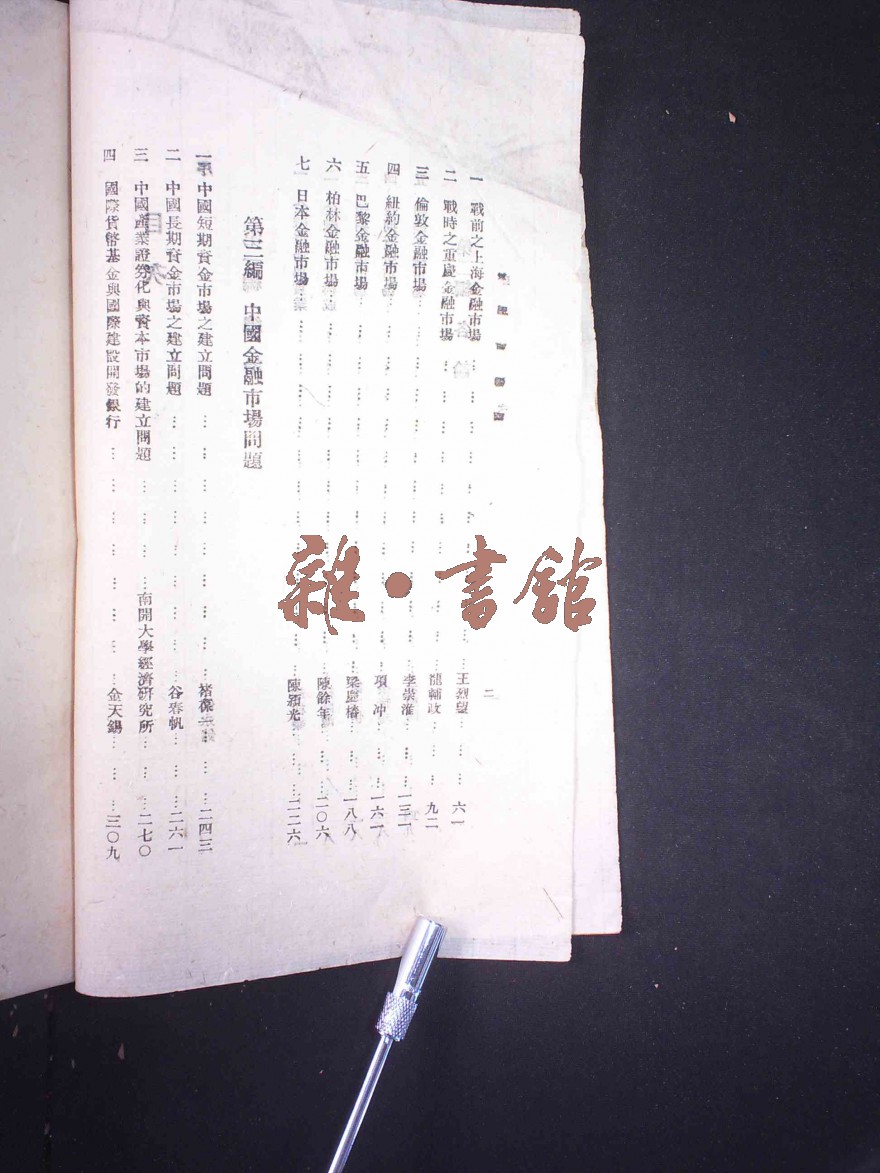 二
一 戰前之上海金融市場……王烈望……六一
二 戰時之重慶金融市場……龍輔政……九二
三 倫敦金融市場……李崇淮……一三一
四 紐約金融市場……項冲……一六一
五 巴黎金融市場……梁慶椿……一八八
六 柏林金融市場……陳餘年……二〇六
七 日本金融市場……陳穎光……二二六
第三編 中國金融市場問題
一 中國短期資金市場之建立問題……褚葆一……二四三
二 中國長期資金市場之建立問題……谷春帆……二六一
三 中國產業證券化與資本市場的建立問題……南開大學經濟研究所……二七〇
四 國際貨幣基金與國際建設開發銀行……金天錫……三〇九
雜·書館